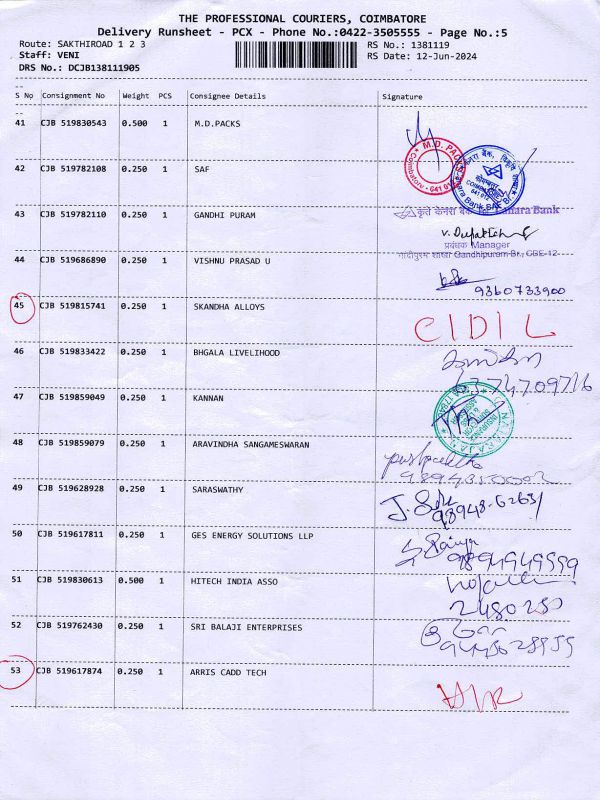 THE PROFESSIONAL COURIERS, COIMBATORE
Delivery Runsheet - PCX - Phone No.:0422-3505555 - Page No.:5
Route: SAKTHIROAD 1 2 3 RS No.: 1381119
Staff: VENI RS Date: 12-Jun-2024
DRS No.: DCJB138111905
S No Consignment No Weight PCS Consignee Details Signature
41 CJB 519830543 0.500 1 M.D.PACKS
42 CJB 519782108 0.250 1 SAF
43 CJB 519782110 0.250 1 GANDHI PURAM
केनरा बैंक Canara Bank
प्रबंधक Manager
Gandhipuram Br., CBE-12
44 CJB 519686890 0.250 1 VISHNU PRASAD U
9360733900
45 CJB 519815741 0.250 1 SKANDHA ALLOYS
46 CJB 519833422 0.250 1 BHGALA LIVELIHOOD
6374709716
47 CJB 519859049 0.250 1 KANNAN
48 CJB 519859079 0.250 1 ARAVINDHA SANGAMESWARAN
49 CJB 519628928 0.250 1 SARASWATHY
98948-62631
50 CJB 519617811 0.250 1 GES ENERGY SOLUTIONS LLP
51 CJB 519830613 0.500 1 HITECH INDIA ASSO
52 CJB 519762430 0.250 1 SRI BALAJI ENTERPRISES
53 CJB 519617874 0.250 1 ARRIS CADD TECH